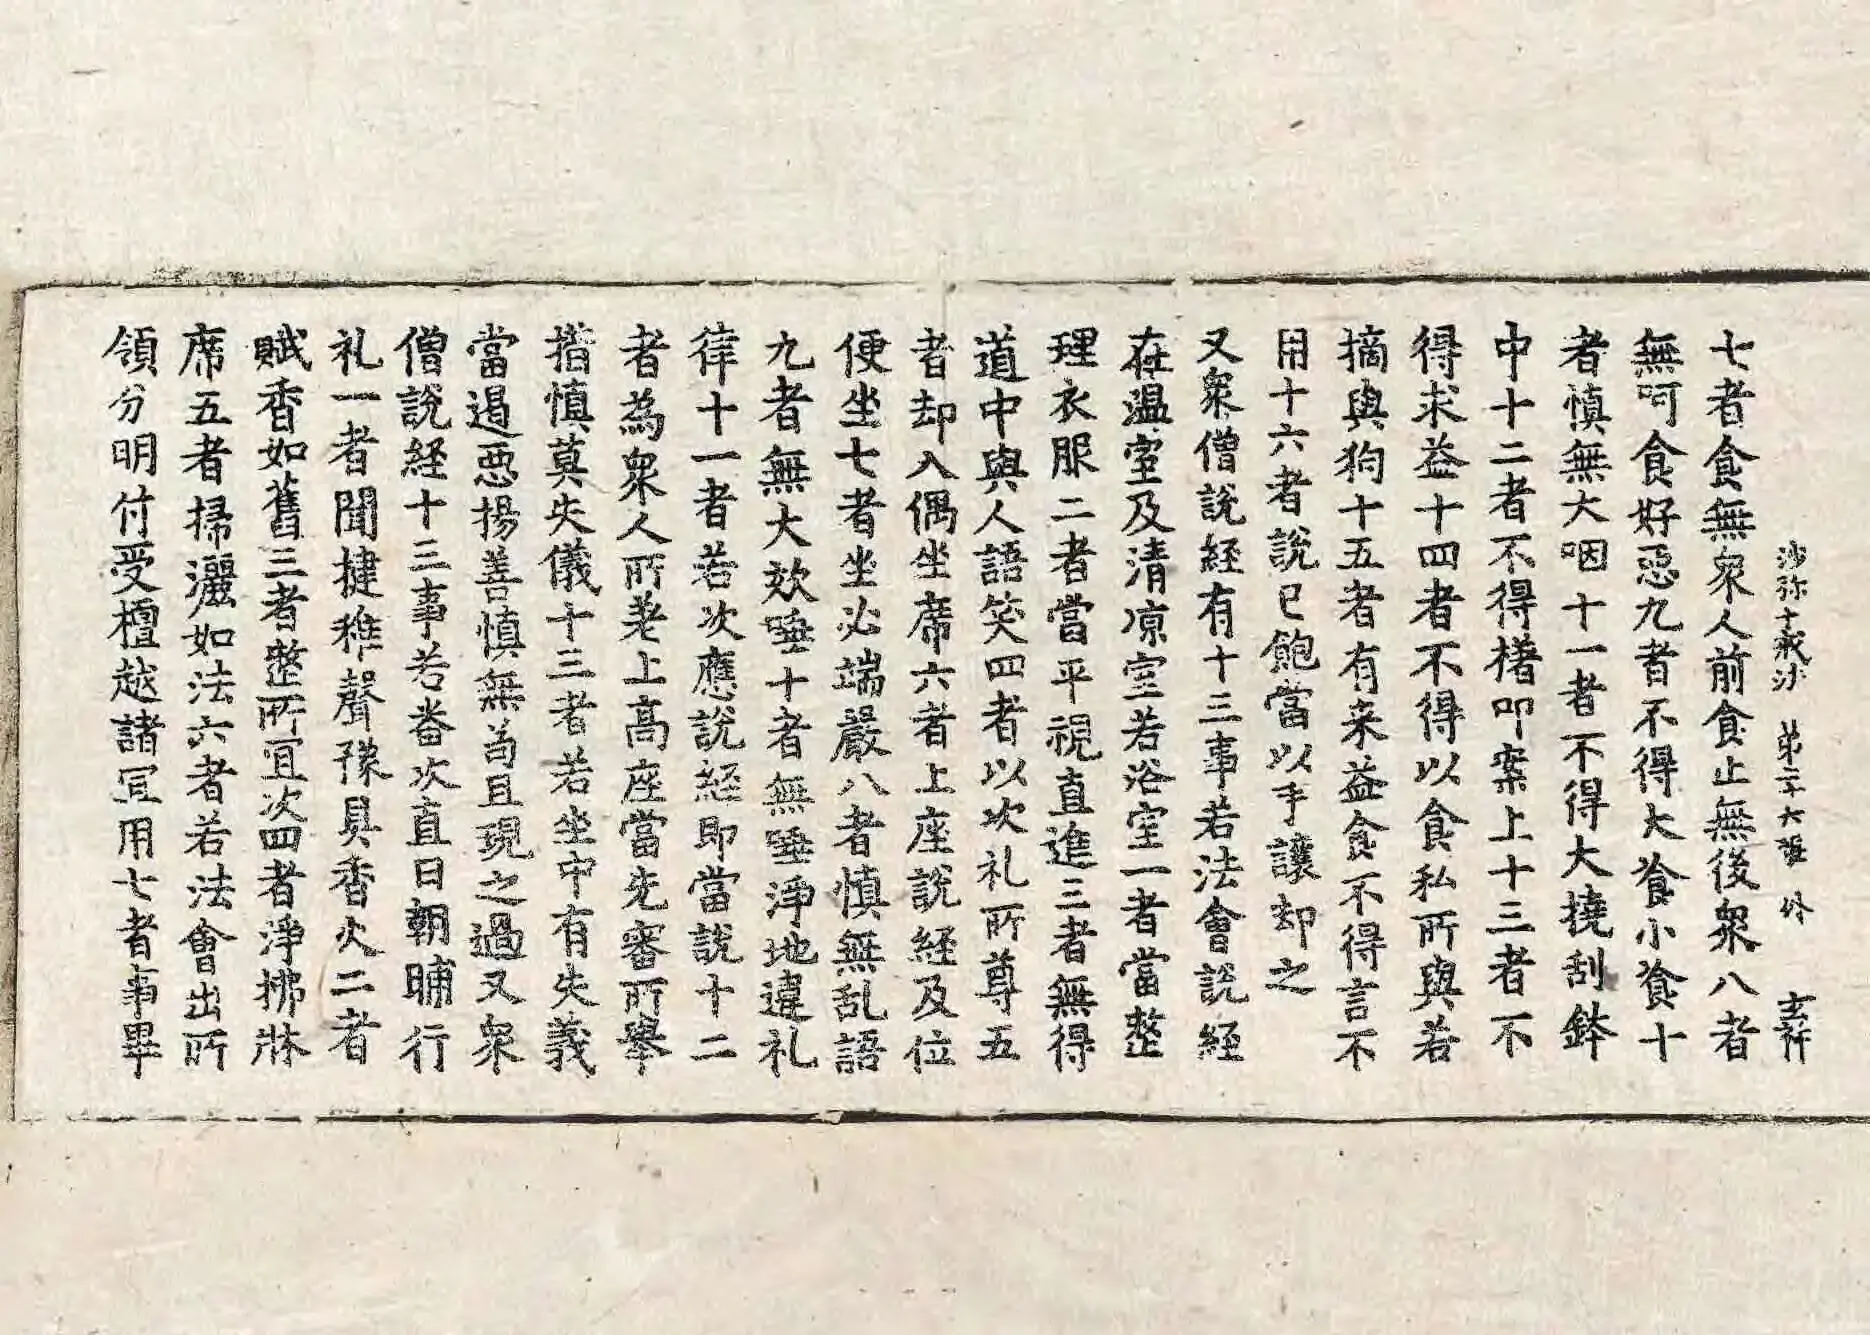 沙弥十戒法 第二十六張 外 玄祥
七者食無衆人前食止無後衆八者
無呵食好惡九者不得大飡小飡十
者慎無大咽十一者不得大撓刮鉢
中十二者不得櫡叩案上十三者不
得求益十四者不得以食私所與若
摘與狗十五者有来益食不得言不
用十六者說已飽當以手讓却之
又衆僧說經有十三事若法會說經
在温室及清凉室若浴室一者當整
理衣服二者當平視直進三者無得
道中與人語笑四者以次礼所尊五
者却入偶坐席六者上座說經及位
便坐七者坐必端嚴八者慎無乱語
九者無大欬唾十者無唾淨地違礼
律十一者若次應說經即當說十二
者為衆人所差上高座當先審所舉
措慎莫失儀十三者若坐中有失義
當遏惡揚善慎無苟且現之過又衆
僧說経十三事若番次直日朝晡行
礼一者聞揵稚聲豫具香火二者
賦香如舊三者整所宜次四者淨拂牀
席五者掃灑如法六者若法會出所
領分明付受檀越諸宜用七者事畢